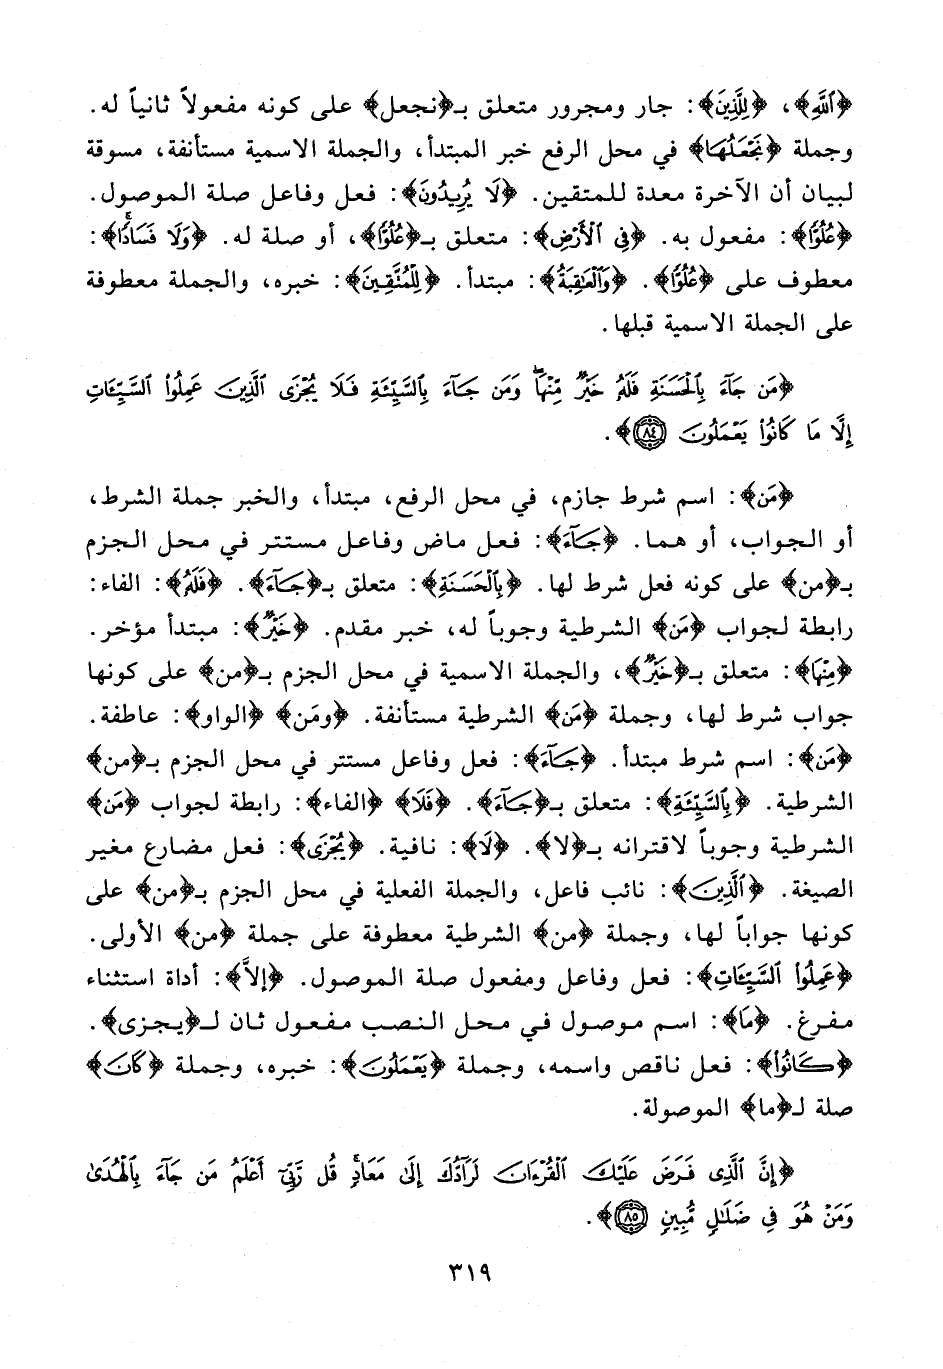 ﴿ٱللَّهِ﴾، ﴿لِلَّذِينَ﴾: جار ومجرور متعلق بـ﴿نجعل﴾ على كونه مفعولاً ثانياً له.
وجملة ﴿نَجْعَلُهَا﴾ في محل الرفع خبر المبتدأ، والجملة الاسمية مستأنفة، مسوقة
لبيان أن الآخرة معدة للمتقين. ﴿لَا يُرِيدُونَ﴾: فعل وفاعل صلة الموصول.
﴿عُلُوًّا﴾: مفعول به. ﴿فِي ٱلْأَرْضِ﴾: متعلق بـ﴿عُلُوًّا﴾، أو صلة له. ﴿وَلَا فَسَادًا﴾:
معطوف على ﴿عُلُوًّا﴾. ﴿وَٱلْعَٰقِبَةُ﴾: مبتدأ. ﴿لِلْمُتَّقِينَ﴾: خبره، والجملة معطوفة
على الجملة الاسمية قبلها.
﴿مَن جَآءَ بِٱلْحَسَنَةِ فَلَهُۥ خَيْرٌ مِّنْهَا ۖ وَمَن جَآءَ بِٱلسَّيِّئَةِ فَلَا يُجْزَى ٱلَّذِينَ عَمِلُوا۟ ٱلسَّيِّـَٔاتِ
إِلَّا مَا كَانُوا۟ يَعْمَلُونَ ٨٤﴾.
﴿مَن﴾: اسم شرط جازم، في محل الرفع، مبتدأ، والخبر جملة الشرط،
أو الجواب، أو هما. ﴿جَآءَ﴾: فعل ماض وفاعل مستتر في محل الجزم
بـ﴿من﴾ على كونه فعل شرط لها. ﴿بِٱلْحَسَنَةِ﴾: متعلق بـ﴿جَآءَ﴾. ﴿فَلَهُۥ﴾: الفاء:
رابطة لجواب ﴿مَن﴾ الشرطية وجوباً له، خبر مقدم. ﴿خَيْرٌ﴾: مبتدأ مؤخر.
﴿مِنْهَا﴾: متعلق بـ﴿خَيْرٌ﴾، والجملة الاسمية في محل الجزم بـ﴿من﴾ على كونها
جواب شرط لها، وجملة ﴿مَن﴾ الشرطية مستأنفة. ﴿ومَن﴾ ﴿الواو﴾: عاطفة.
﴿مَن﴾: اسم شرط مبتدأ. ﴿جَآءَ﴾: فعل وفاعل مستتر في محل الجزم بـ﴿من﴾
الشرطية. ﴿بِٱلسَّيِّئَةِ﴾: متعلق بـ﴿جَآءَ﴾. ﴿فَلَا﴾ ﴿الفاء﴾: رابطة لجواب ﴿مَن﴾
الشرطية وجوباً لاقترانه بـ﴿لا﴾. ﴿لَا﴾: نافية. ﴿يُجْزَى﴾: فعل مضارع مغير
الصيغة. ﴿ٱلَّذِينَ﴾: نائب فاعل، والجملة الفعلية في محل الجزم بـ﴿من﴾ على
كونها جواباً لها، وجملة ﴿من﴾ الشرطية معطوفة على جملة ﴿من﴾ الأولى.
﴿عَمِلُوا۟ ٱلسَّيِّـَٔاتِ﴾: فعل وفاعل ومفعول صلة الموصول. ﴿إلاَّ﴾: أداة استثناء
مفرغ. ﴿مَا﴾: اسم موصول في محل النصب مفعول ثان لـ﴿يجزى﴾.
﴿كَانُوا۟﴾: فعل ناقص واسمه، وجملة ﴿يَعْمَلُونَ﴾: خبره، وجملة ﴿كَانَ﴾
صلة لـ﴿ما﴾ الموصولة.
﴿إِنَّ ٱلَّذِى فَرَضَ عَلَيْكَ ٱلْقُرْءَانَ لَرَآدُّكَ إِلَىٰ مَعَادٍ ۚ قُل رَّبِّىٓ أَعْلَمُ مَن جَآءَ بِٱلْهُدَىٰ
وَمَنْ هُوَ فِى ضَلَٰلٍ مُّبِينٍ ٨٥﴾.
٣١٩